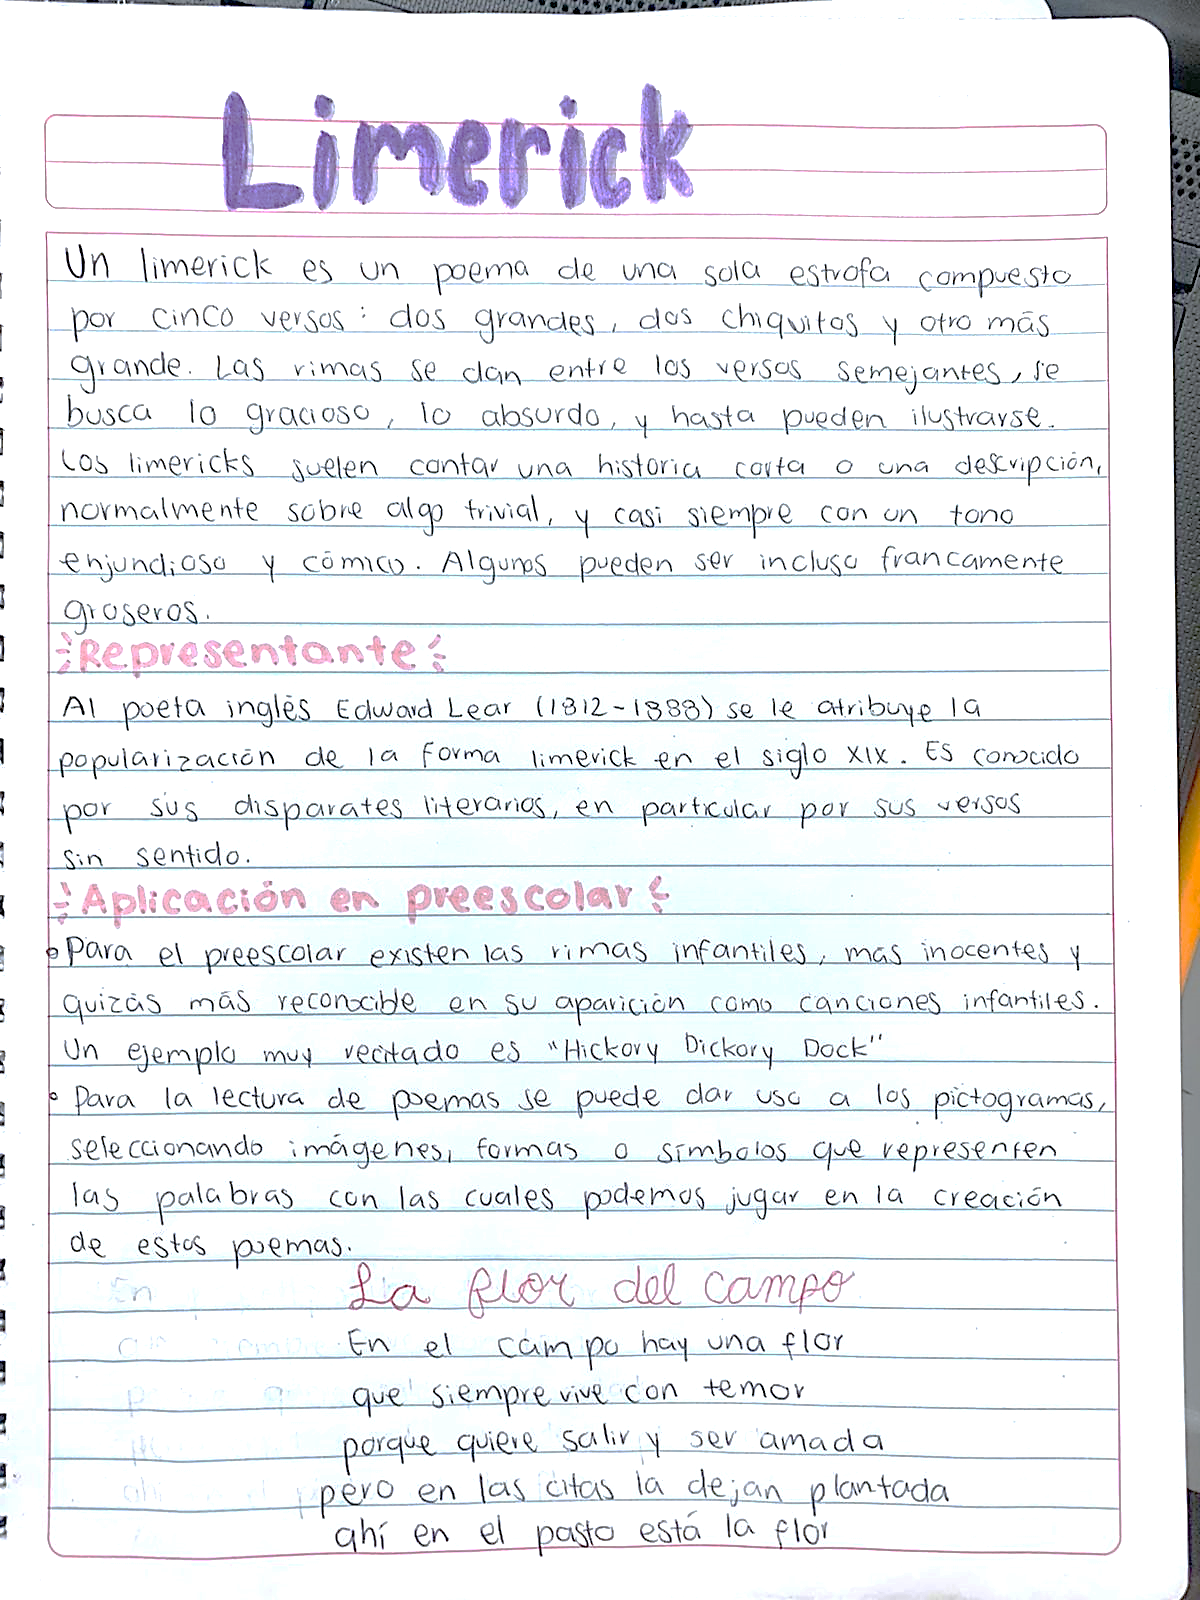 Limerick
Un limerick es un poema de una sola estrofa compuesto
por cinco versos: dos grandes, dos chiquitos y otro más
grande. Las rimas se dan entre los versos semejantes, se
busca lo gracioso, lo absurdo, y hasta pueden ilustrarse.
Los limericks suelen contar una historia corta o una descripción,
normalmente sobre algo trivial, y casi siempre con un tono
enjundioso y cómico. Algunos pueden ser incluso francamente
groseros.
Representante
Al poeta inglés Edward Lear (1812-1888) se le atribuye la
popularización de la forma limerick en el siglo XIX. Es conocido
por sus disparates literarios, en particular por sus versos
sin sentido.
Aplicación en preescolar
Para el preescolar existen las rimas infantiles, mas inocentes y
quizás más reconocible en su aparición como canciones infantiles.
Un ejemplo muy recitado es "Hickory Dickory Dock"
Para la lectura de poemas se puede dar uso a los pictogramas,
seleccionando imágenes, formas o símbolos que representen
las palabras con las cuales podemos jugar en la creación
de estos poemas.
La flor del campo
En el campo hay una flor
que siempre vive con temor
porque quiere salir y ser amada
pero en las citas la dejan plantada
ahí en el pasto está la flor